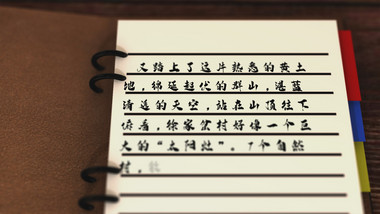 又踏上了这片熟悉的黄土
地，绵延起伏的群山，湛蓝
清远的天空，站在山顶往下
俯看，徐家岔村好像一个巨
大的“太阳灶”。7个自然
村，